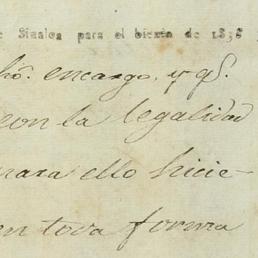 Sinaloa para el bienio de 1838
ho. encargo, y qe.
con la legalidad
para ello hicie-
en toda forma